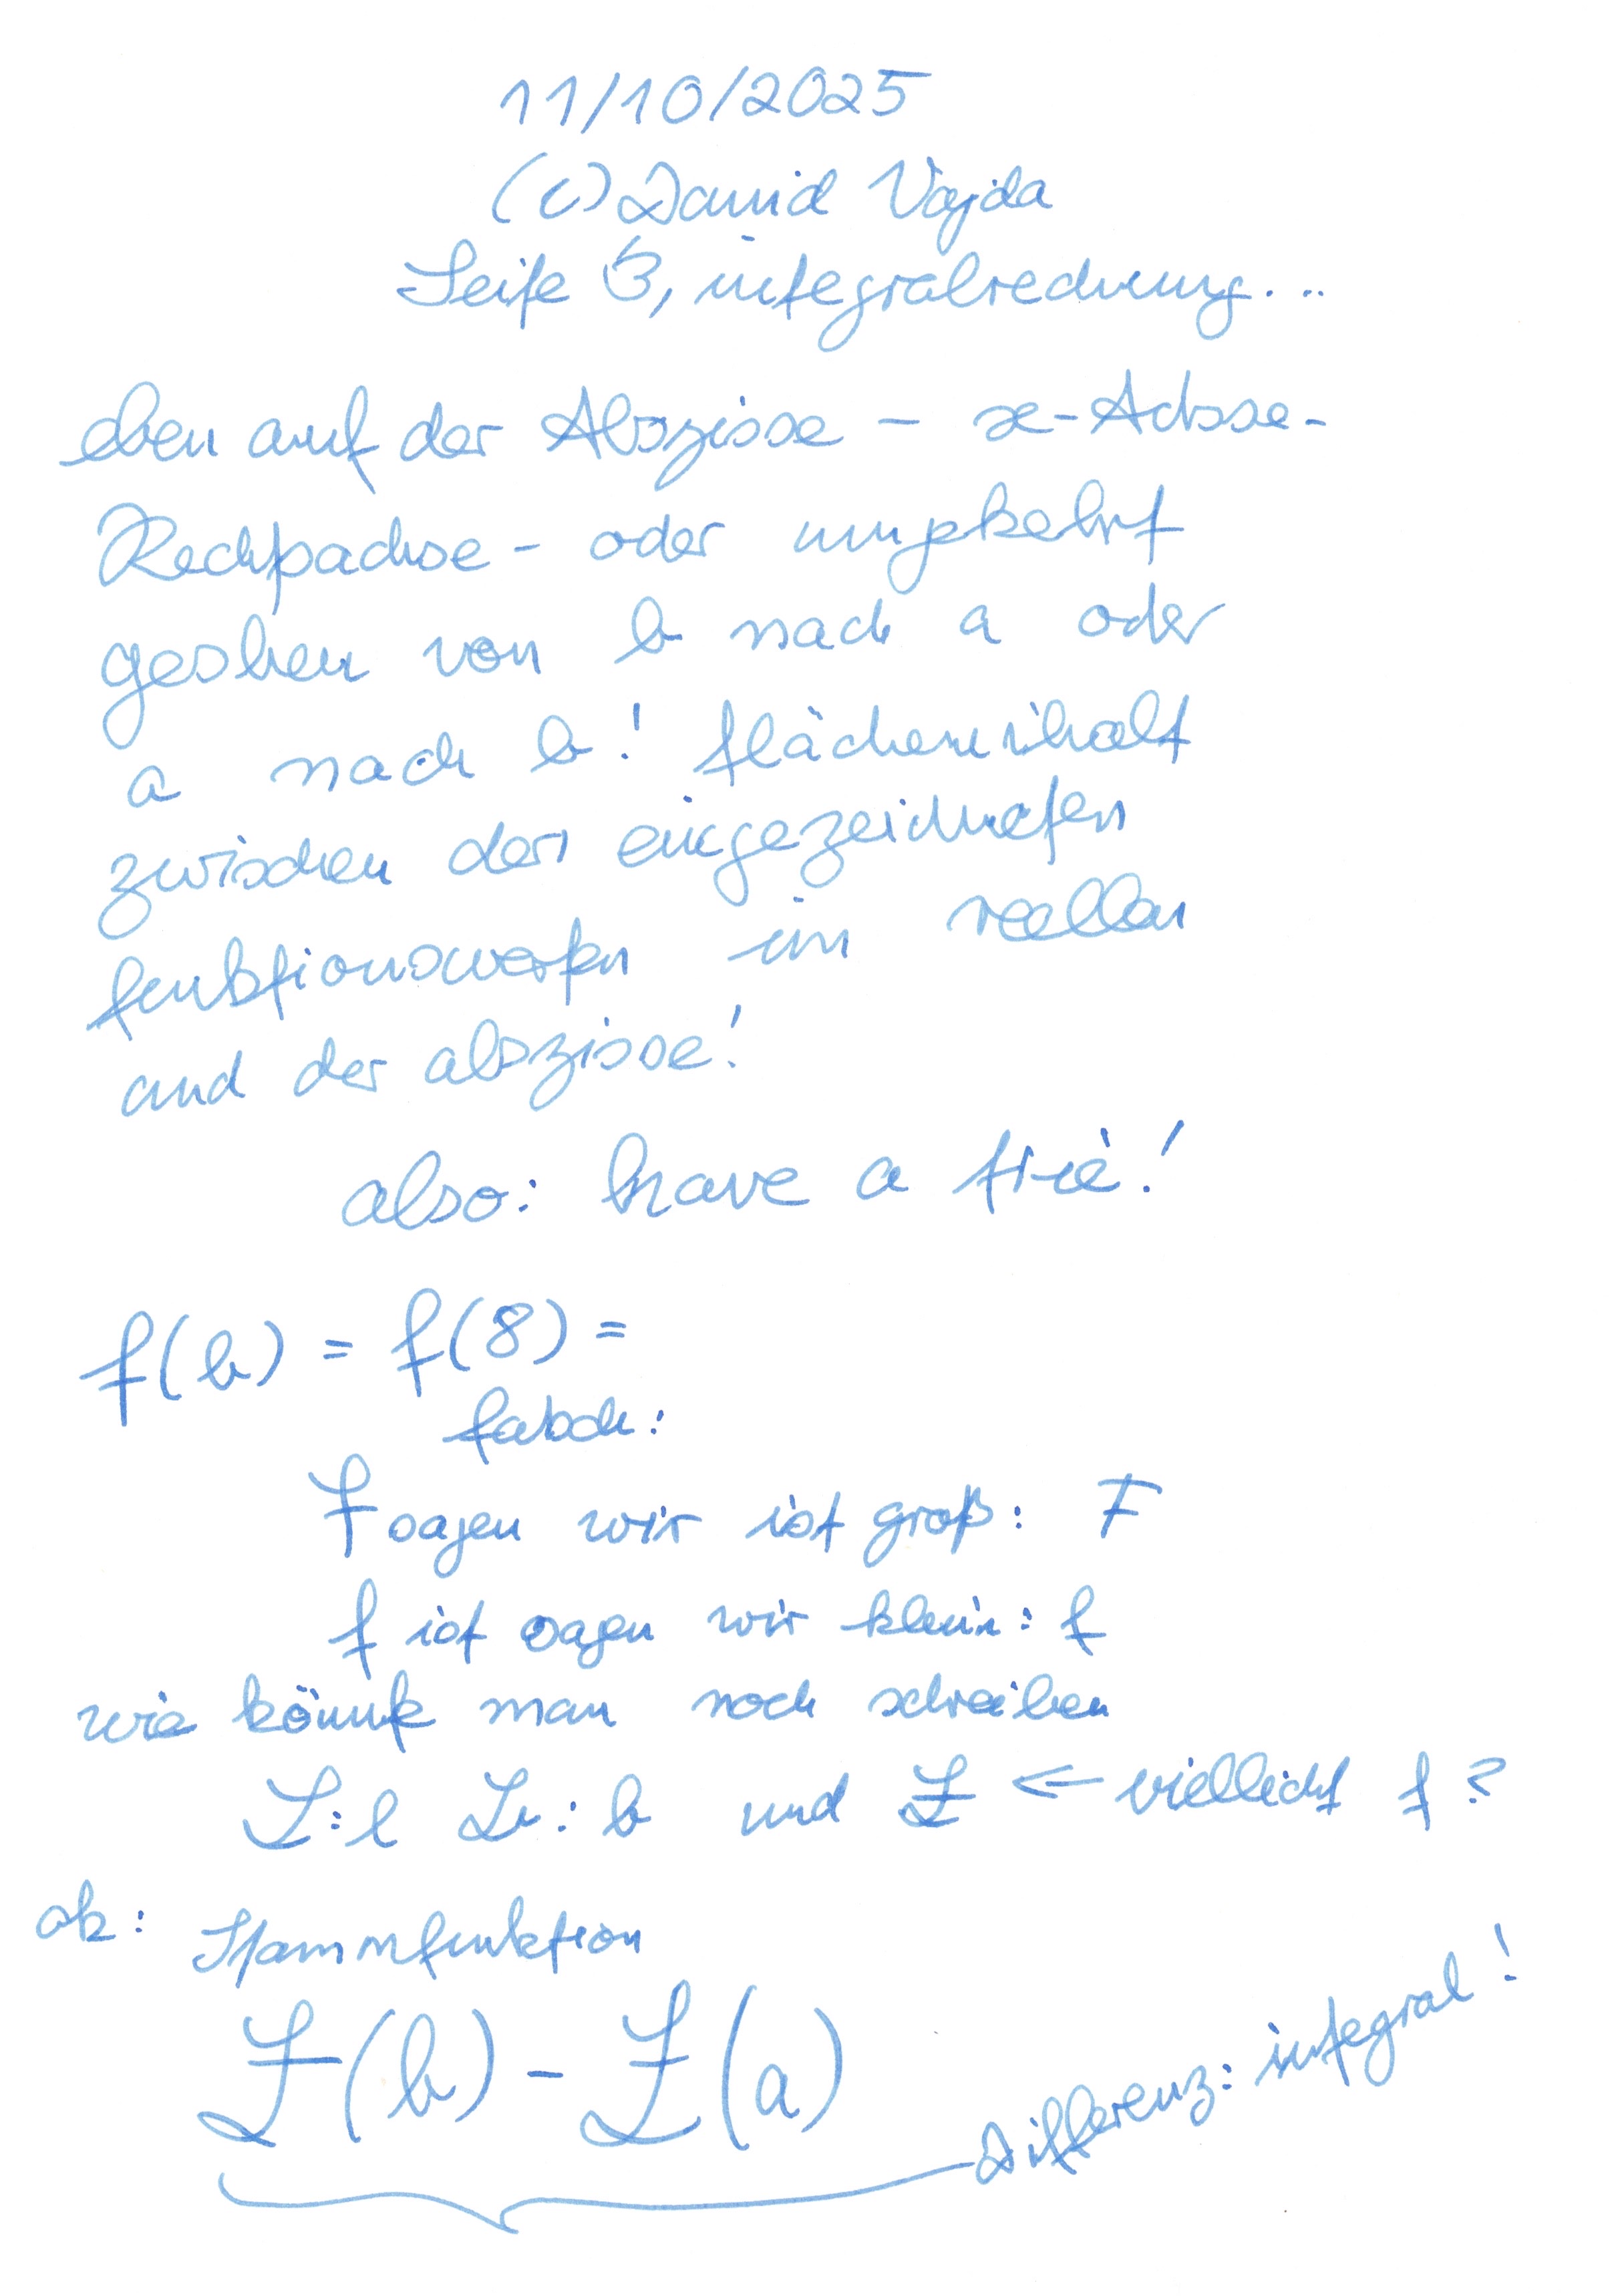 11/10/2025
(c) David Vajda
Seite 3, integralrechnung...
eben auf der Abszisse - x-Achse -
Rechtsachse - oder umgekehrt
gesehen von b nach a oder
a nach b! flächeninhalt
zwischen den eingezeichneten
funktionswerten im reellen
und der abszisse!
also: have a trie!
f(b) = f(8) =
falsch:
f sagen wir ist groß: F
f ist sagen wir klein: f
wie könnte man noch schreiben
L:l b und F ← viellicht f?
ok: Stammfunktion
F(b) - F(a)
Differenz: integral!